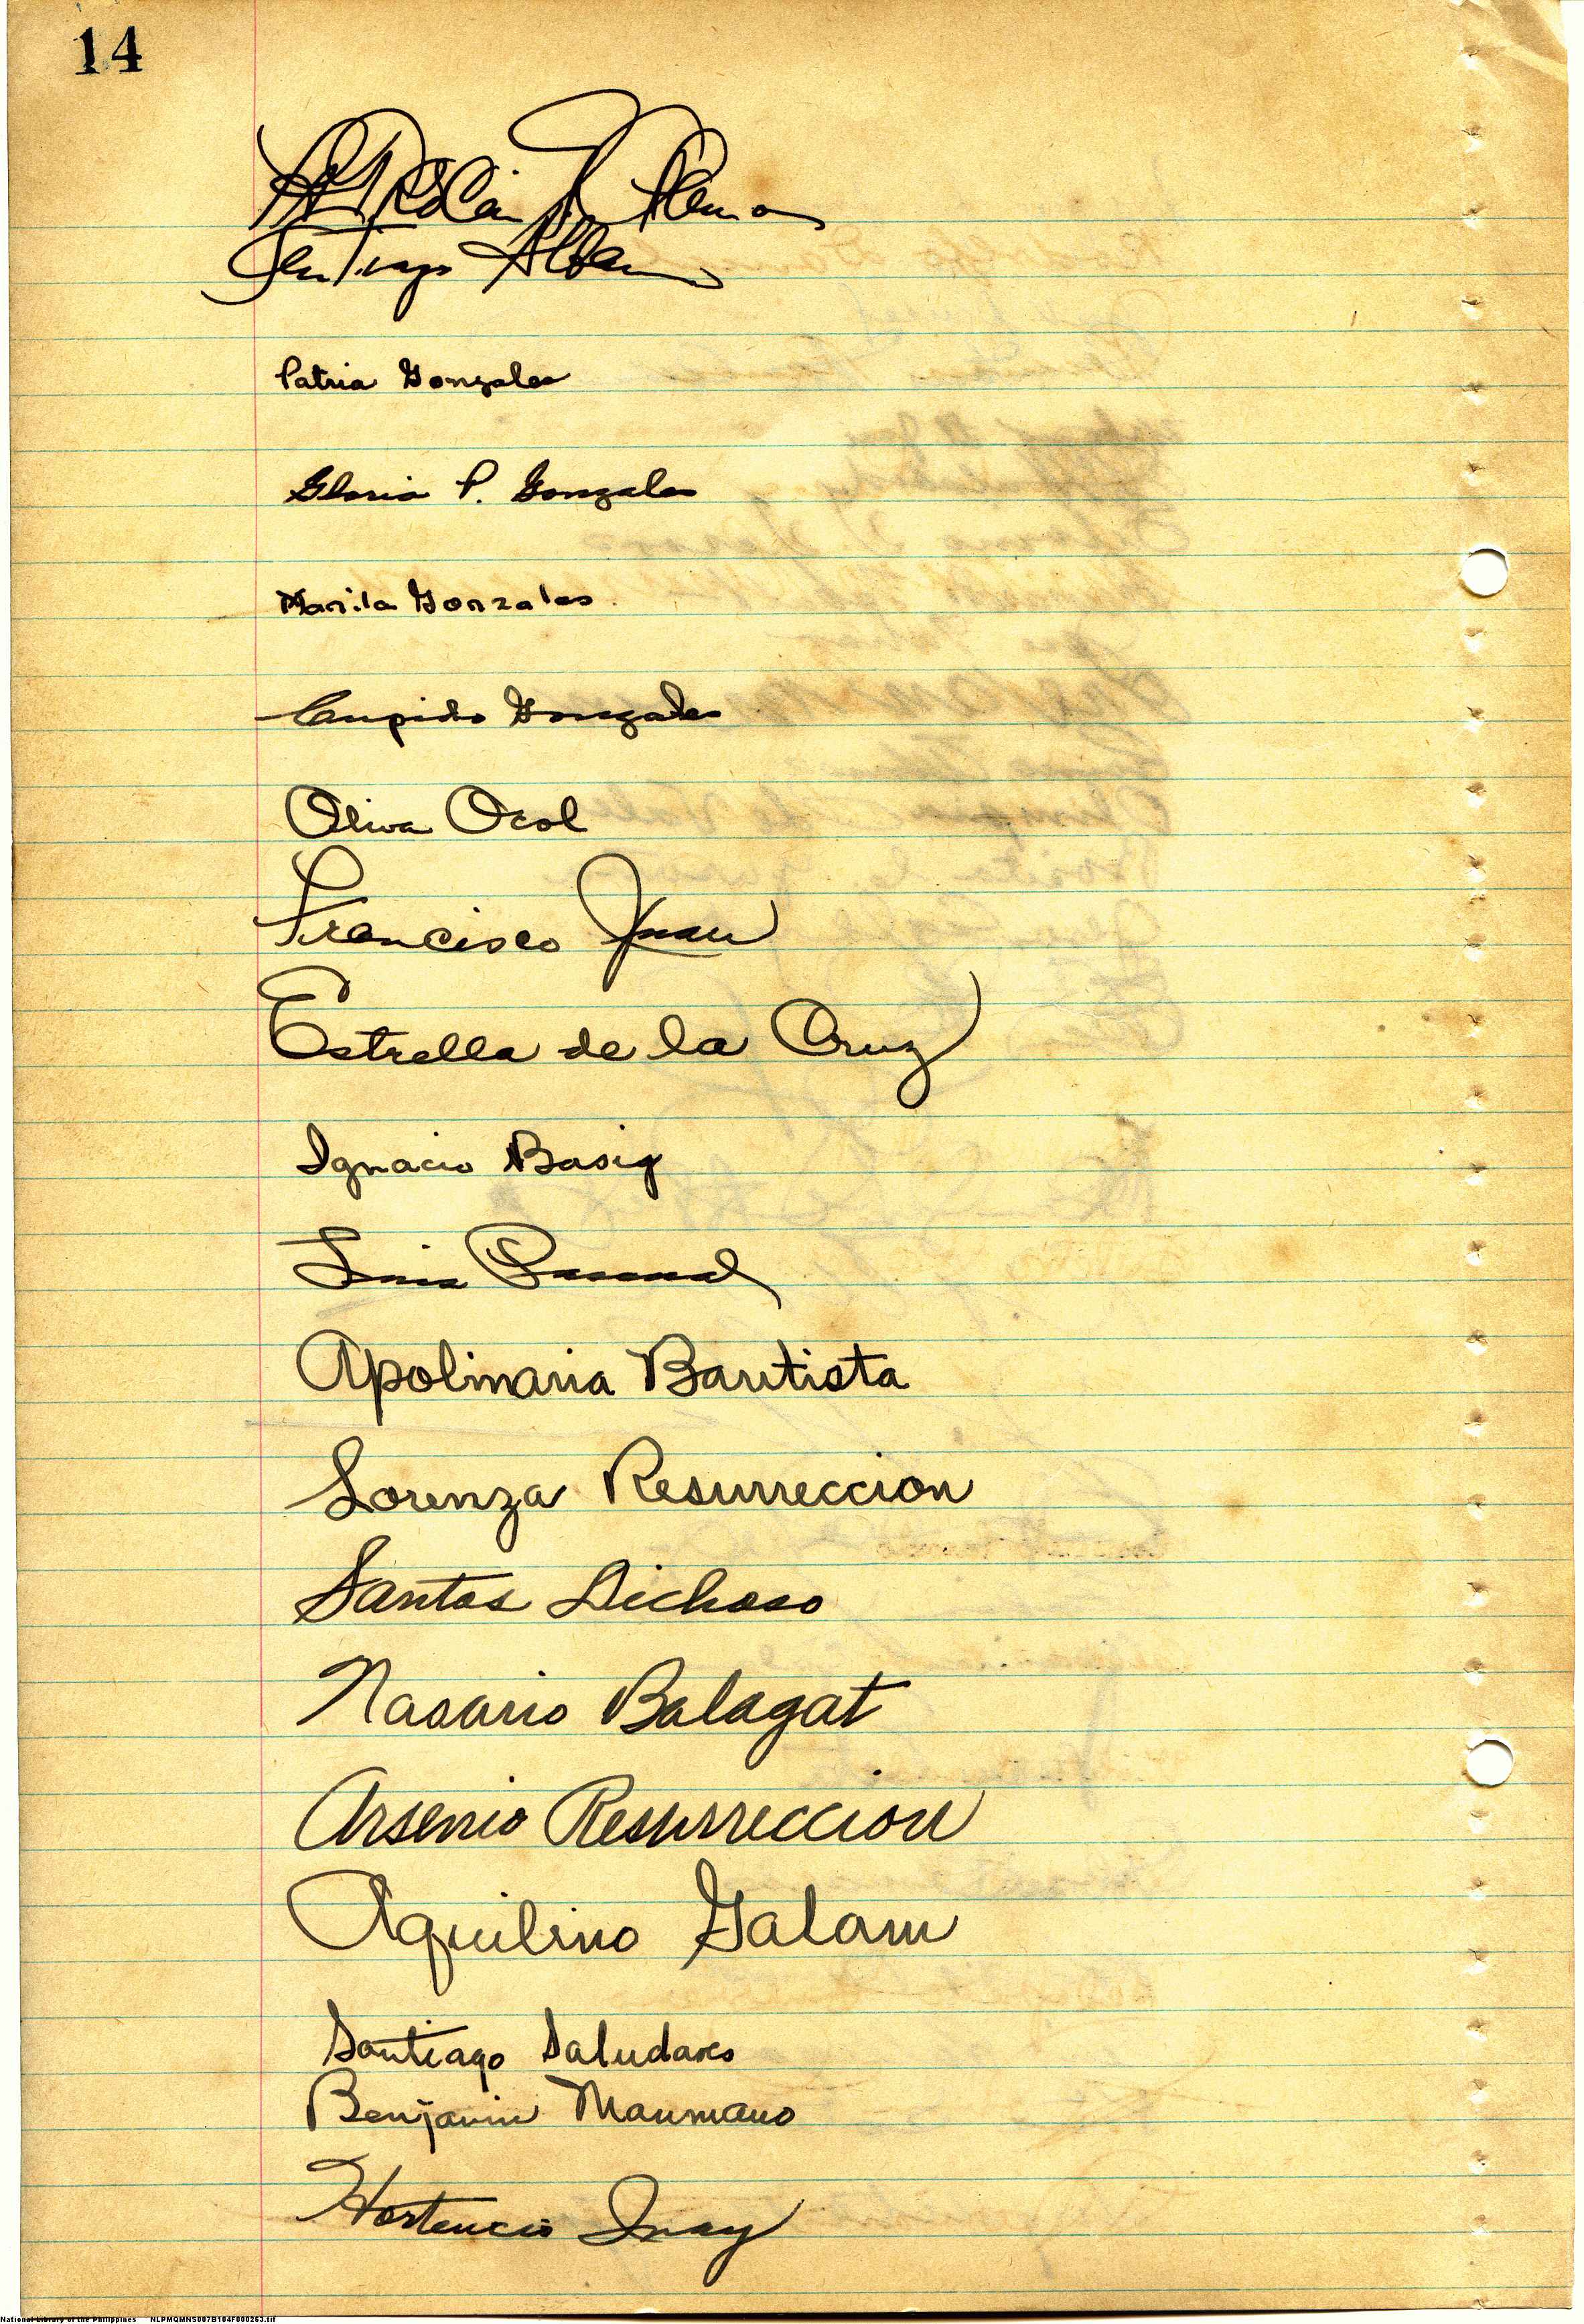 14
Santiago
Patria Gonzales
Gloria P. Gonzales
Manila Gonzales
Cupido Gonzales
Oliva Ocol
Francisco Juan
Estrella de la Cruz
Ignacio Basig
Luis Pascual
Apolinaria Bautista
Lorenza Resurreccion
Santos Dichoso
Nasario Balagat
Arsenio Resurreccion
Aquilino Galam
Santiago Saludares
Benjamin Maumauo
Hortencio Inay
National Library of the Philippines NLPMQMNS007B104F000263.tif